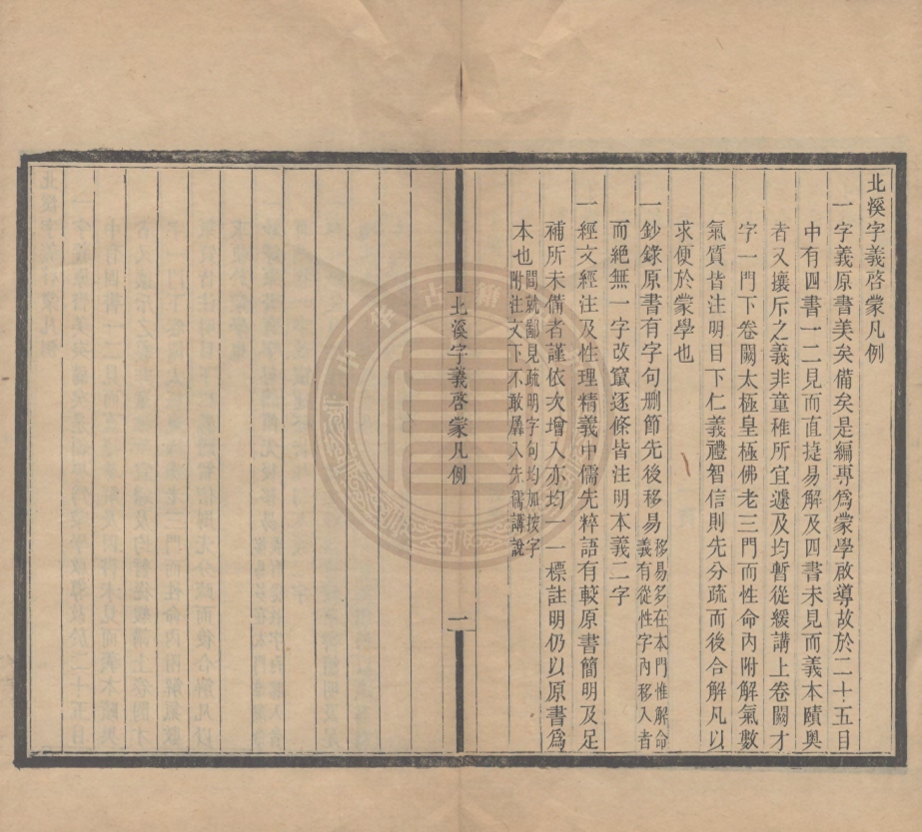 北溪字義啓蒙凡例
一字義原書美矣備矣是編專爲蒙學啟導故於二十五目
中有四書一二見而直捷易解及四書未見而義本賾奥
者又攘斥之義非童稚所宜遽及均暫從緩講上卷闕才
字一門下卷闕太極皇極佛老三門而性命內附解氣數
氣質皆注明目下仁義禮智信則先分疏而後合解凡以
求便於蒙學也
一鈔錄原書有字句删節先後移易移易多在本門惟解命義有從性字內移入者
而絶無一字改竄逐條皆注明本義二字
一經文經注及性理精義中儒先粹語有較原書簡明及足
補所未備者謹依次增入亦均一一標註明仍以原書爲
本也間就鄙見疏明字句均加按字附注文下不敢孱入先儒講說
北溪字義啓蒙凡例
一